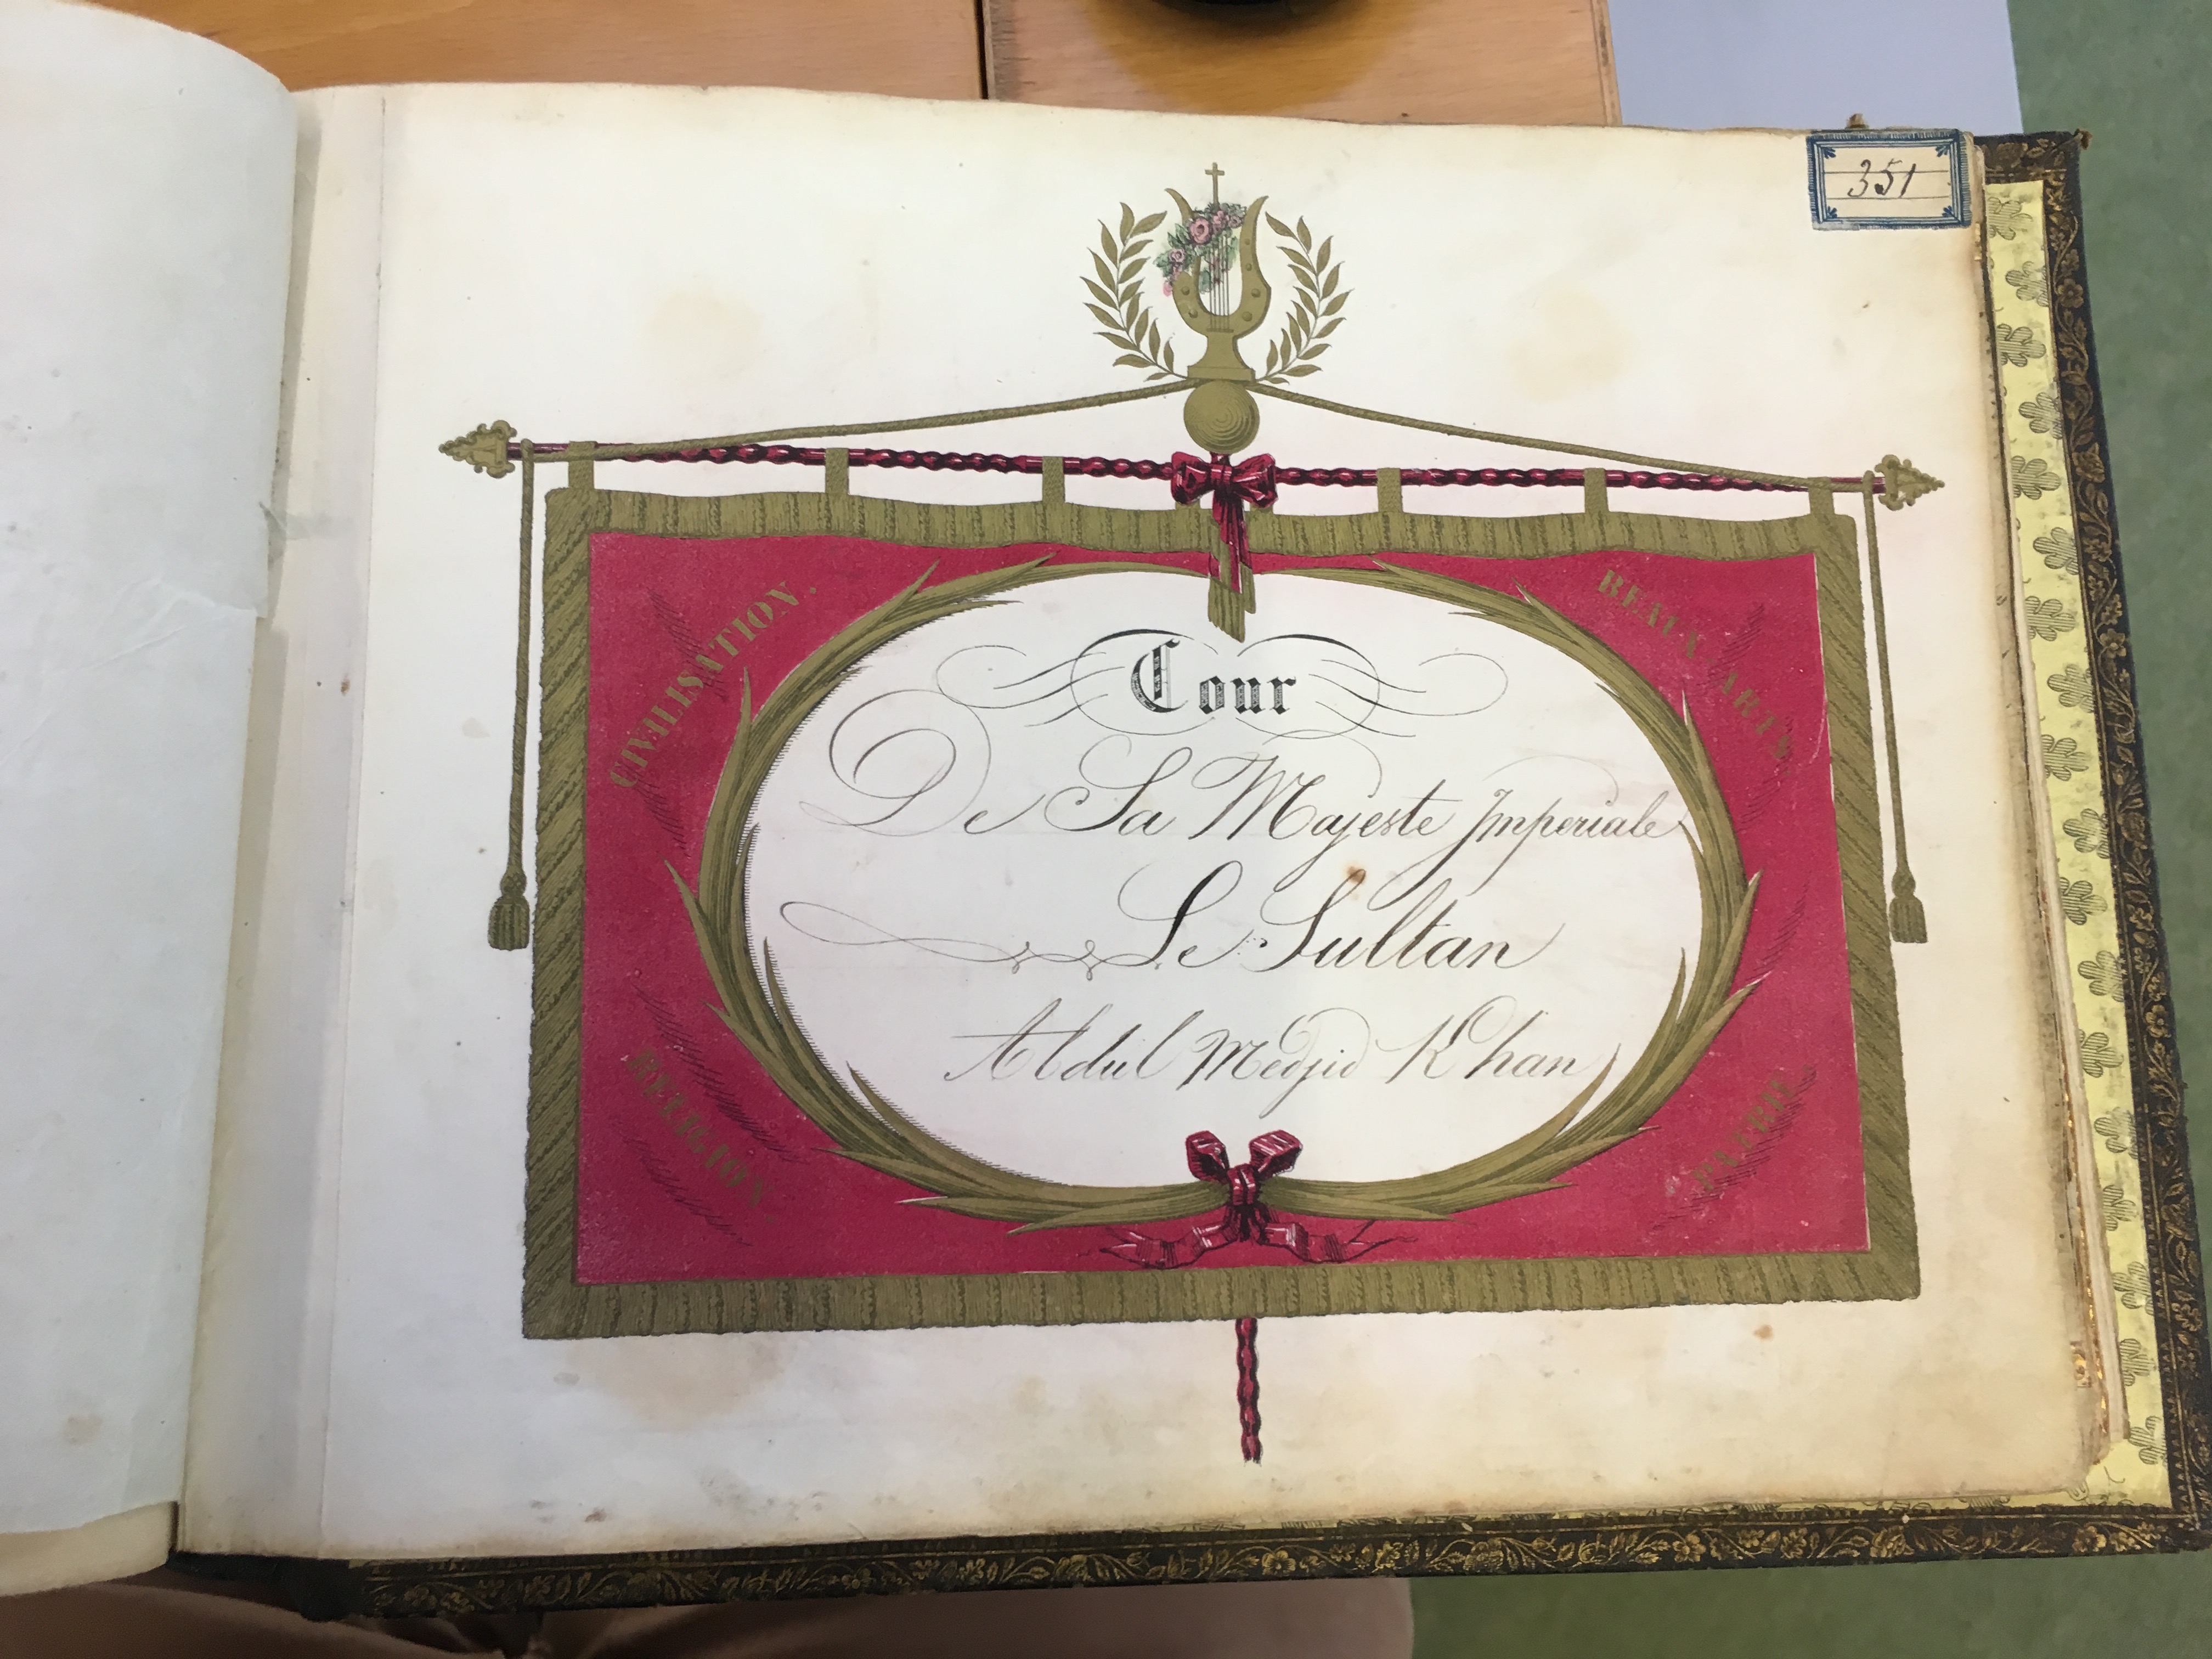 351
CIVILISATION.
BEAUX ARTS.
Cour
De Sa Majeste Imperiale
Le Sultan
Abdul Medjid Khan
RELIGION.
PATRIE.